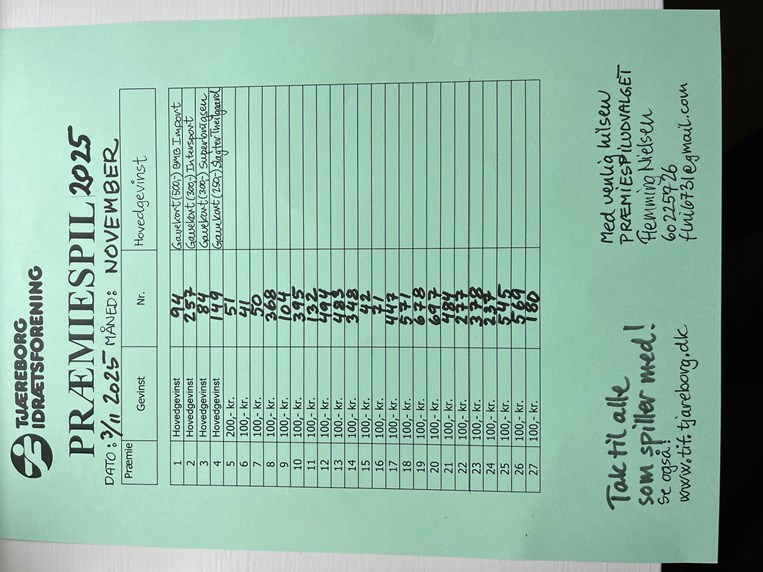 TJÆREBORG
IDRÆTSFORENING
PRÆMIESPIL 2025
DATO: 3/11 2025 MÅNED: NOVEMBER
Præmie Gevinst Nr. Hovedgevinst
1 Hovedgevinst 94 Gavekort (500,-) BMB Import
2 Hovedgevinst 257 Gavekort (300,-) Intersport
3 Hovedgevinst 84 Gavekort (300,-) Superbrugsen
4 Hovedgevinst 149 Gavekort (250,-) Slagter Theilgaard
5 200,- kr. 51
6 100,- kr. 41
7 100,- kr. 50
8 100,- kr. 368
9 100,- kr. 104
10 100,- kr. 395
11 100,- kr. 132
12 100,- kr. 494
13 100,- kr. 483
14 100,- kr. 348
15 100,- kr. 42
16 100,- kr. 71
17 100,- kr. 447
18 100,- kr. 571
19 100,- kr. 678
20 100,- kr. 697
21 100,- kr. 484
22 100,- kr. 277
23 100,- kr. 378
24 100,- kr. 237
25 100,- kr. 545
26 100,- kr. 569
27 100,- kr. 180
Tak til alle
som spiller med!
Se også!
www.tif.tjareborg.dk
Med venlig hilsen
PRÆMIESPILUDVALGET
Flemming Nielsen
60225926
flni6731@gmail.com